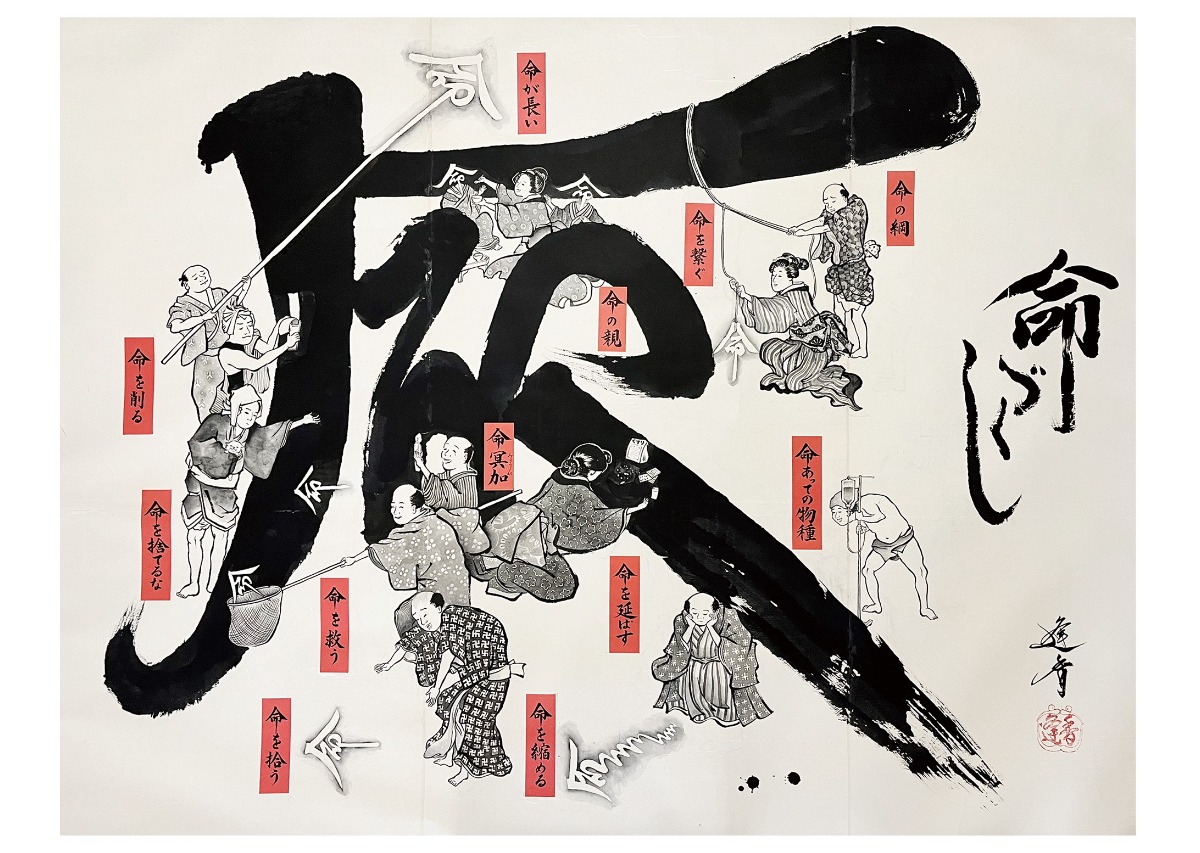 命づくし
命の綱
命を繋ぐ
命あっての物種
命の親
命を延ばす
命が長い
命冥加
命を縮める
命を救う
命を拾う
命を削る
命を捨てるな